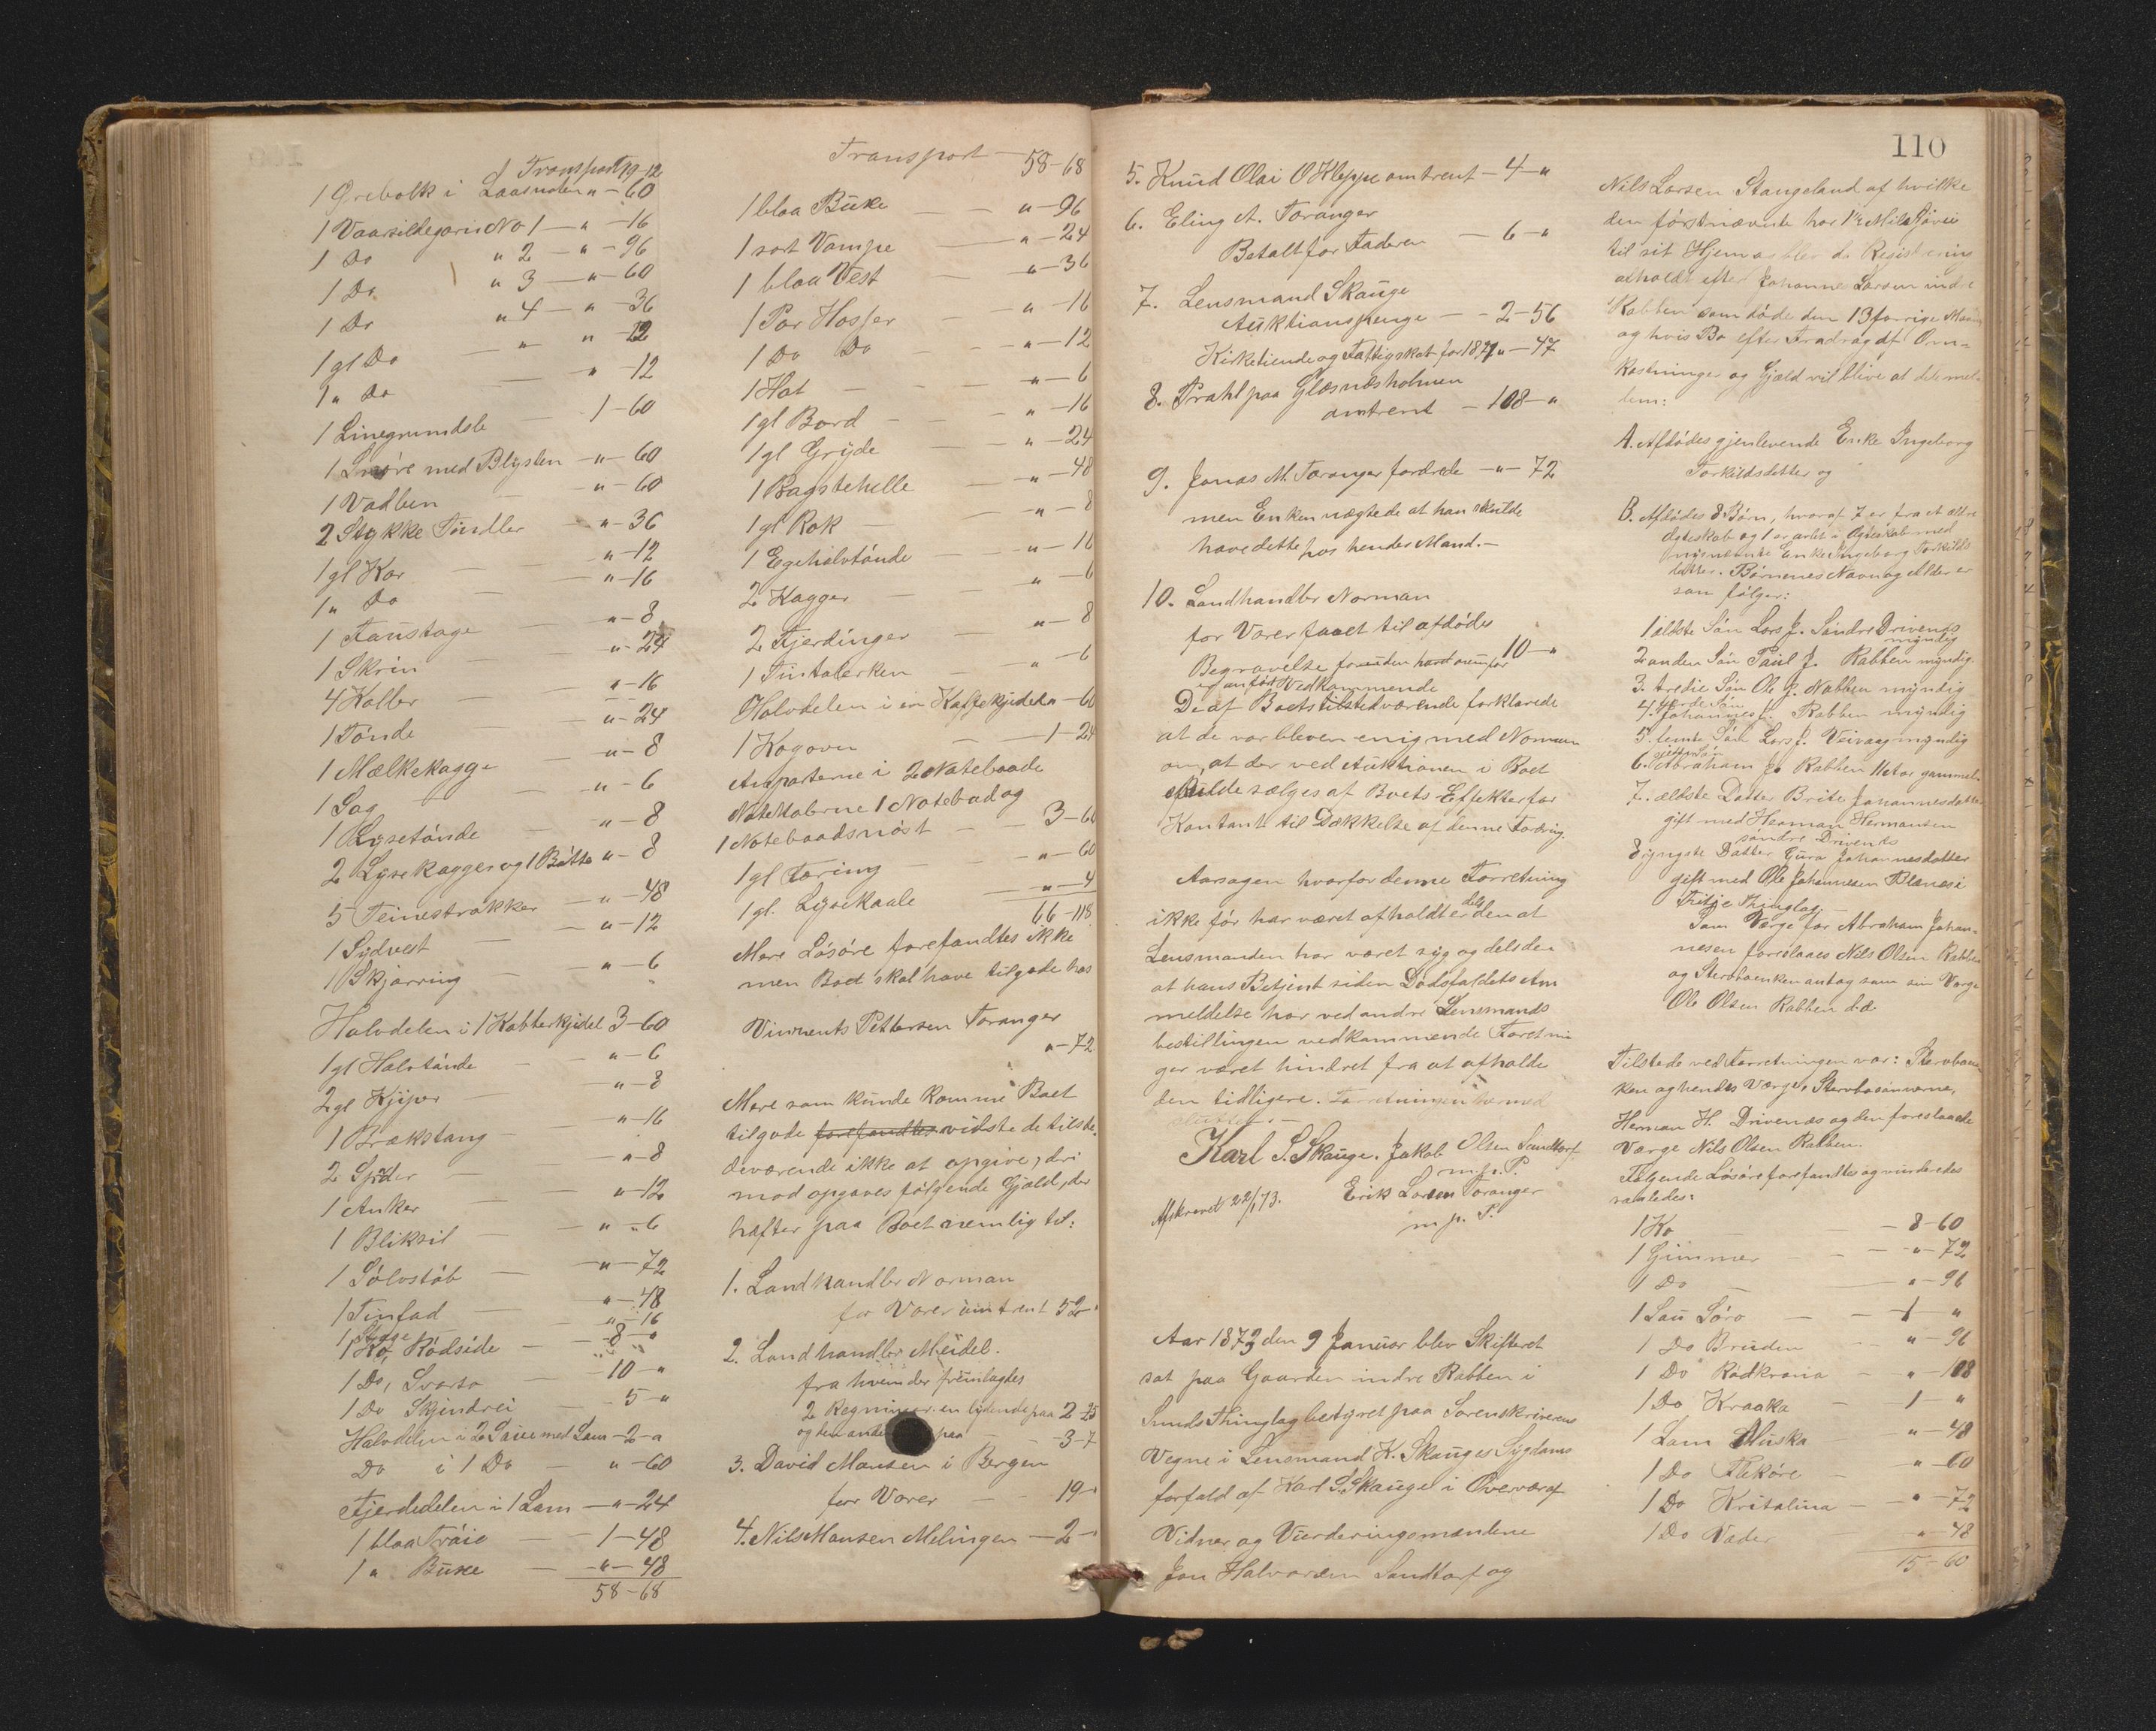 Transport 19-12
1 Grebolk i Laasnoten " - 60
1 Vaarsildegarn No 1 - " - 16
1 Do " 2 - " - 96
1 Do " 3 - " - 60
1 Do " 4 - " - 36
1 gl Do - " " - 12
1 " Do - " - 12
1 Linegrumdsle - 1 - 60
1 Snøre med Blysten - " - 60
1 Vadben - " - 60
2 Stykke Tindler - " - 36
1 gl Kar - " - 12
1 " Do - " - 16
1 Faustage - " - 8
1 Skrin - " - 24
4 Koller - " - 16
1 Tønde - " - 24
1 Mælkekagge - " - 8
1 Sag - " - 6
1 Lysetønde - " - 8
2 Lysekagger og 1 Bøtte " - 8
5 Teinestrokker - " - 48
1 Sydvest - " - 12
1 Skjærring - " - 6
Halvdelen i 1 Kobberkjedel 3 - 60
1 gl Halvtønde - " - 6
2 gl Kjiper - " - 8
1 Brækstang - " - 16
2 Spder - " - 8
1 Anker - " - 12
1 Bliksil - " - 6
1 Sølvstøb - " - 72
1 Tinfad - " - 48
1 Stygge " - 16
1 Ko, Rødside - 8 - "
1 Do, Svarta - 10 - "
1 Do Skjindrei - 5 - "
Halvdelen i 2 Saue med Lam - 2 - "
Do i 1 Do - " - 60
Fjerdedelen i 1 Lam - " - 24
1 blaa Trøie - 1 - 48
1 " Buxe - " - 48
58 - 68
Transport - 58-68
1 blaa Buxe - " - 96
1 sort Vampe - " - 24
1 blaa Vest - " - 36
1 Par Hosser - " - 16
1 Do Do - " - 12
1 Hat - " - 6
1 gl Bord - " - 16
1 gl Gryde - " - 24
1 Bagstehelle - " - 48
1 gl Rok - " - 8
1 Egehalvtønde - " - 16
2 Kagger - " - 6
2 Fjerdinger - " - 8
1 Tintalerken - " - 6
Halvdelen i en Kaffekjedel " - 60
1 Kogovn - 1 - 24
Anparterne i 2 Notebaade
1 Notebad og
1 Notebaadsnøst - 3 - 60
1 gl Færing - " - 60
1 gl. Lysekaale - " - 4
66 - 118
Mere Løsøre forefandtes ikke
men Boet skal have tilgode hos
Vinnents Pettersen Toranger
" - 72
Mere som kunde komme Boet
tilgode forefandtes vidste de tilste
deværende ikke at opgive, deri
mod opgaves følgende Gjæld, der
hæfter paa Boet nemlig til:
1. Landhandler Norman
for Varer omtrent 52 - "
2. Landhandler Meidel.
fra hvem der fremlagdes
2 Regninger en lydende paa 2 - 25
og den anden paa - 3 - 7
3. David Monsen i Bergen
for Varer - 19 - "
4. Nils Monsen Melingen - 2 - "
5. Knud Olai O Kleppe omtrent - 4 - "
6. Eling A. Toranger
Betalt for Faderen - 6 - "
7. Lensmand Skauge
Auktionspenge - 2 - 56
Kirketiende og Fattigskat for 1871 " - 47
8. Prahl paa Glæsnæsholmen
omtrent - 108 - "
9. Jonas M. Toranger fordrede - " - 72
men Enken nægtede at han skulde
have dette hos hendes Mand. -
10. Landhandler Norman
for Varer faaet til afdødes
Begravelse foruden hvad ovenfor 10 - "
er anført Vedkommende
De af Boets tilstedværende forklarede
at de var bleven enig med Norman
om, at der ved Auktionen i Boet
skulde sælges af Boets Effekter for
Kontant til Dækkelse af denne Fodring.
Aarsagen hvorfor denne Forretning
ikke før har været afholdt er dels den at
Lensmanden har været syg og dels den
at hans Betjent siden Dødsfaldets An
meldelse har ved andre Lensmands
bestillingen vedkommende Foretnin
ger været hindret fra at afholde
den tidligere. Forretningen hermed
sluttet. -
Karl S. Skauge. Jakob Olsen Sandtorf
m. p. P.
Afskrevet 22/1 73. Erik Larsen Toranger
m. p. P.
Aar 1873 den 9 Januar blev Skifteret
sat paa Gaarden indre Rabben i
Sunds Thinglag bestyret paa Sorenskriverens
Vegne i Lensmand K. Skauges Sygdoms
forfald af Karl S. Skauge i Overvær af
Vidner og Vurderingsmændene
Jon Halvorsen Sandtorf og
110
Nils Larsen Stangeland af hvilke
den førstnævnte har 1 1/2 Mils Søvei
til sit Hjem og blev da Registrering
afholdt efter Johannes Larsen indre
Rabben som døde den 13 forrige Maan
og hvis Bo efter Fradrag af Om-
kostninger og Gjæld vil blive at dele mel-
lem:
A. Afdødes gjenlevende Enke Ingeborg
Torkildsdatter og
B. Afdødes 8 Børn, hvoraf 7 er fra et ældre
Ægteskab og 1 er avlet i Ægteskab med
nysnævnte Enke Ingeborg Torkilds
datter. Børnenes Navn og Alder er
som følger:
1 ældste Søn Lars J. Søndre Drivenæs
myndig
2 anden Søn Paul J. Rabben myndig
3. tredie Søn Ole J. Nabben myndig
4. fjerde Søn Johannes J. Rabben myndig
5. femte Søn Lars J. Veivaag myndig
6. sjette Søn Abraham J. Rabben 11 Aar gammel
7. ældste Datter Brite Johannesdatter
gift med Herman Hermansen
søndre Drivenæs
8 yngste Datter Guro Johannesdatter
gift med Ole Johannesen Blanæs i
Fitje Thinglag. -
Som Værge for Abraham Johan-
nesen foreslaaes Nils Olsen Rabben
og Stervboenken antog som sin Værge
Ole Olsen Rabben d.æ
Tilstede ved Forretningen var: Stervboen
ken og hendes Værge, Stervbosønnerne,
Herman H. Drivenæs og den foreslaaede
Værge Nils Olsen Rabben.
Følgende Løsøre forefandtes og vurderedes
saaledes:
1 Ko - 8 - 60
1 Gimmer - " - 72
1 Do - " - 96
1 Sau Sóro - 1 - "
1 Do Bruden - " - 96
1 Do Rødkrona - " - 108
1 Do Kraaka - 1 - "
1 Lam Muska - " - 48
1 Do Flekóre - " - 60
1 Do Kristalina - " - 72
1 Do Nader - " - 48
15 - 60